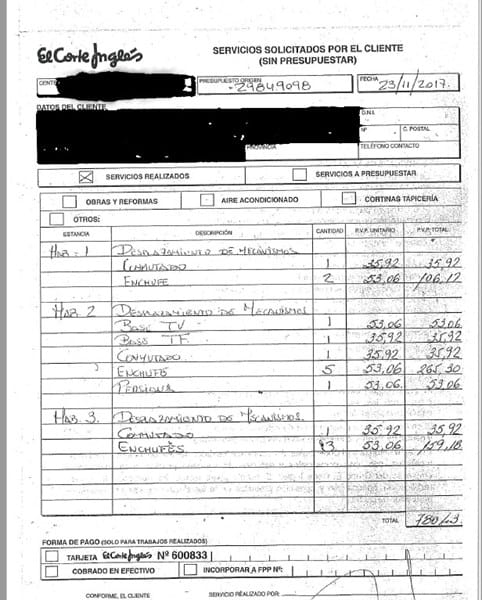 El Corte Inglés
SERVICIOS SOLICITADOS POR EL CLIENTE
(SIN PRESUPUESTAR)
PRESUPUESTO ORIGEN FECHA
29849098 23/11/2017.
DATOS DEL CLIENTE
D.N.I.
Nº C. POSTAL
PROVINCIA TELÉFONO CONTACTO
SERVICIOS REALIZADOS SERVICIOS A PRESUPUESTAR
OBRAS Y REFORMAS AIRE ACONDICIONADO CORTINAS TAPICERÍA
OTROS:
ESTANCIA DESCRIPCIÓN CANTIDAD P.V.P. UNITARIO P.V.P. TOTAL
HAB. 1 DESPLAZAMIENTO DE MECANISMOS
CONMUTADO 1 35,92 35,92
ENCHUFE 2 53,06 106,12
HAB. 2 DESPLAZAMIENTO DE MECANISMOS
BASE TV 1 53,06 53,06
BASE TF 1 35,92 35,92
CONMUTADO 1 35,92 35,92
ENCHUFE 5 53,06 265,30
PERSIANA 1 53,06 53,06
HAB. 3. DESPLAZAMIENTO DE MECANISMOS.
CONMUTADO 1 35,92 35,92
ENCHUFES 3 53,06 159,18
TOTAL
FORMA DE PAGO (SOLO PARA TRABAJOS REALIZADOS)
TARJETA El Corte Inglés Nº 600833
COBRADO EN EFECTIVO INCORPORAR A FPP Nº:
CONFORME, EL CLIENTE SERVICIO REALIZADO POR: